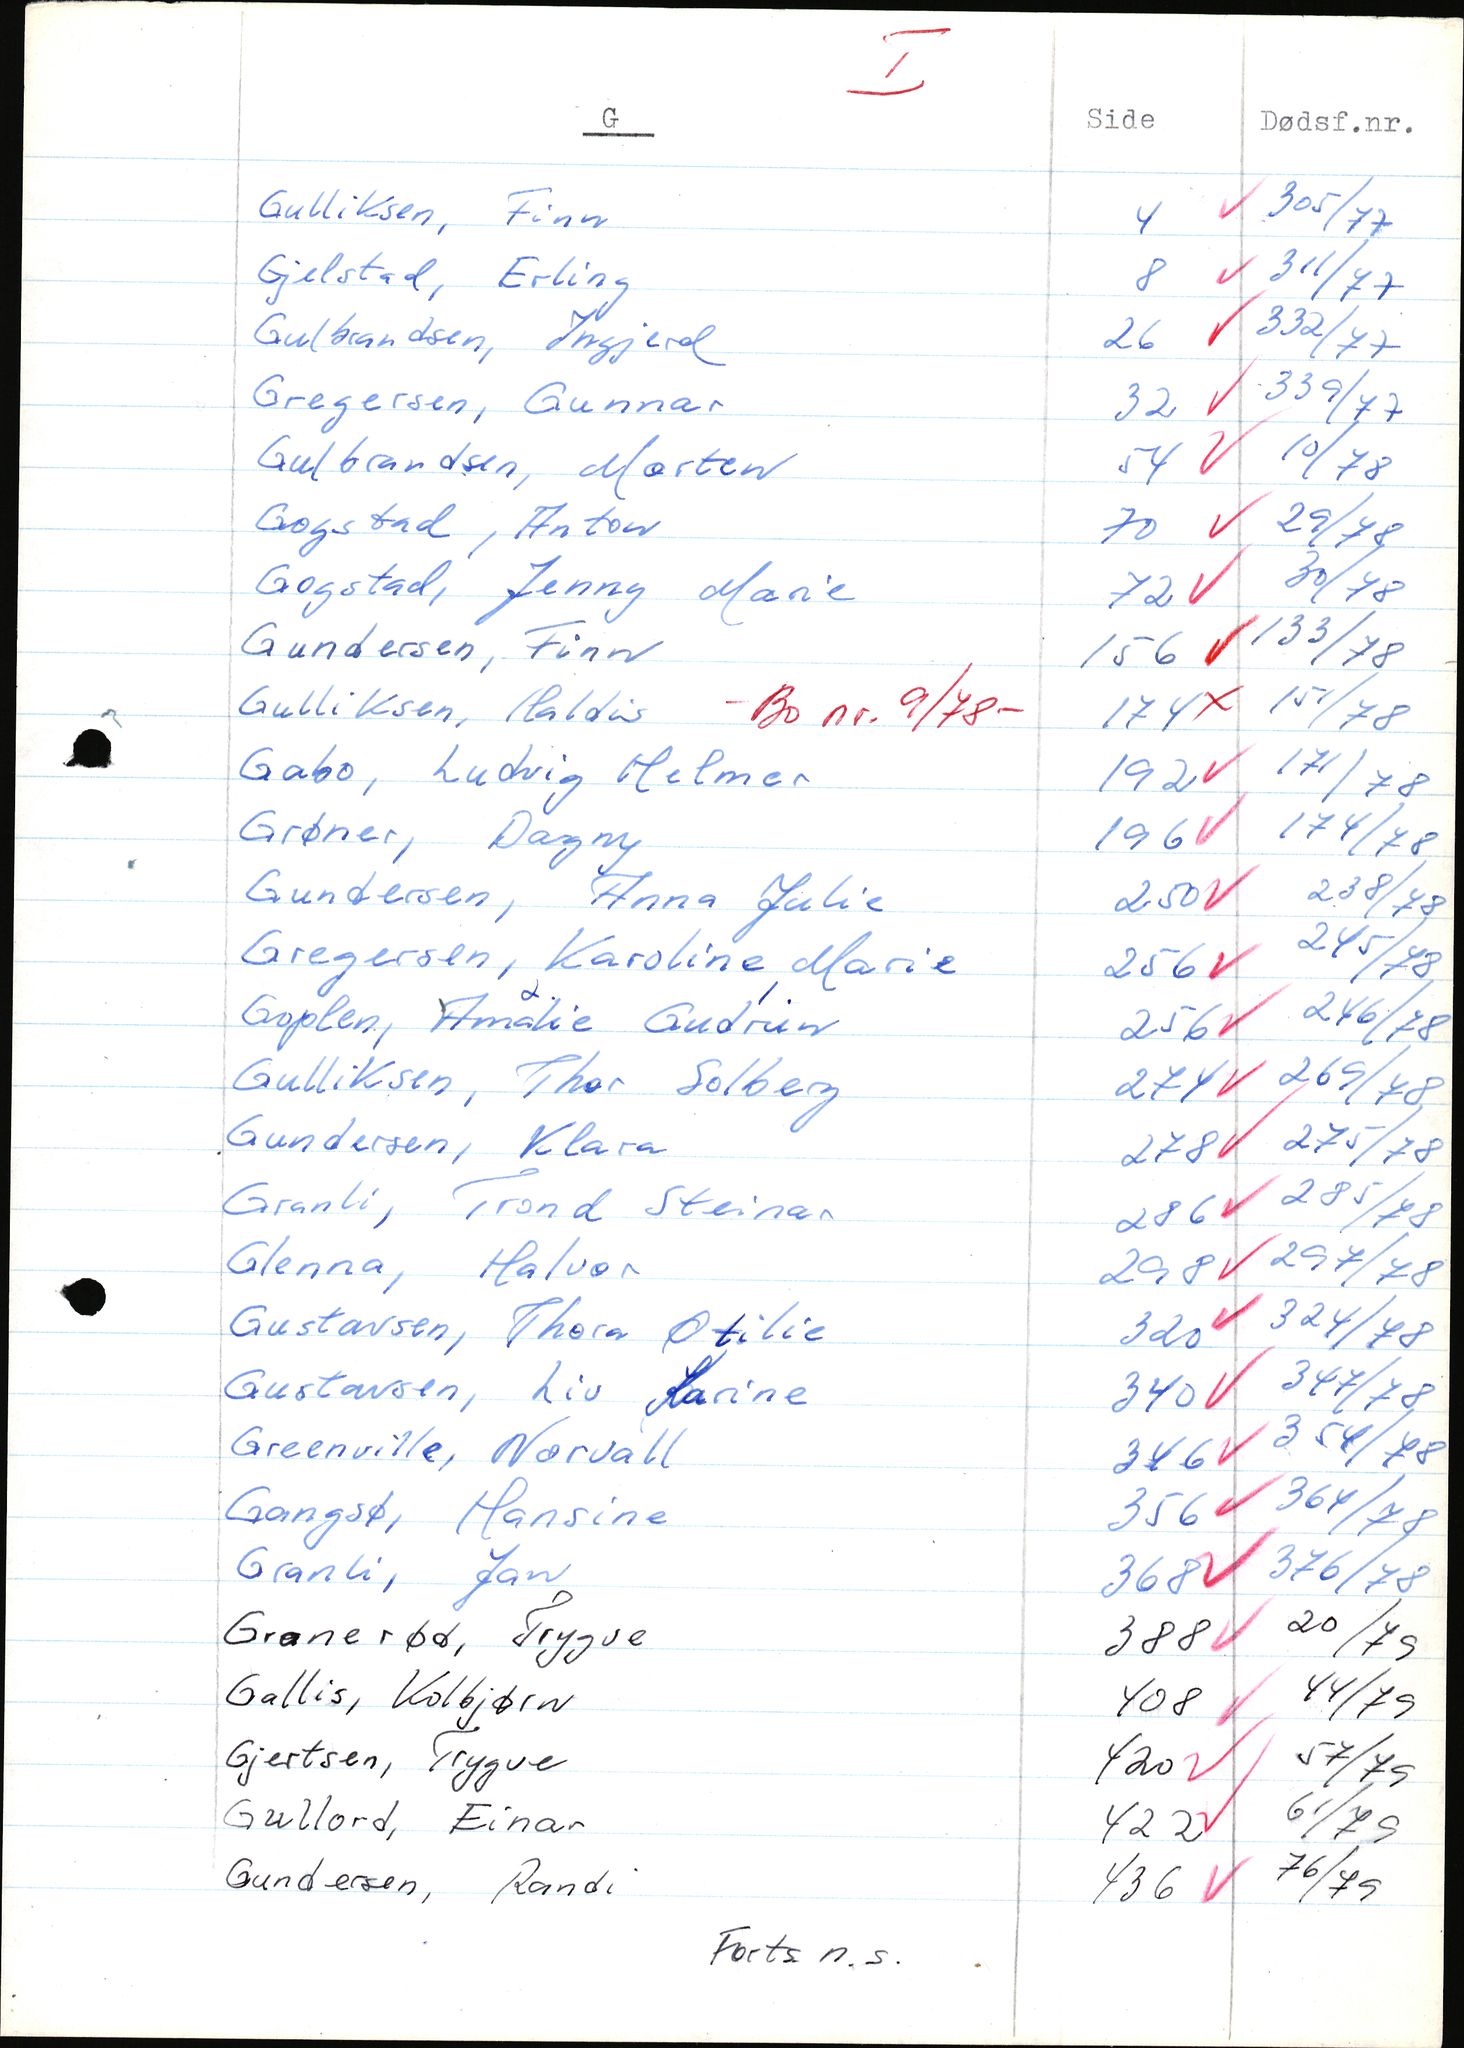 I
G Side Dødsf.nr.
Gulliksen, Finn 4 ✓ 305/77
Gjelstad, Erling 8 ✓ 311/77
Gulbrandsen, Ingjerd 26 ✓ 332/77
Gregersen, Gunnar 32 ✓ 339/77
Gulbrandsen, Morten 54 ✓ 10/78
Gogstad, Anton 70 ✓ 29/78
Gogstad, Jenny Marie 72 ✓ 30/78
Gundersen, Finn 156 ✓ 133/78
Gulliksen, Haldis - Bo nr. 9/78 - 174 x 151/78
Gabo, Ludvig Helmer 192 ✓ 171/78
Grøner, Dagny 196 ✓ 174/78
Gundersen, Anna Julie 250 ✓ 238/78
Gregersen, Karoline Marie 256 ✓ 245/78
Goplen, Amalie Gudrun 256 ✓ 246/78
Gulliksen, Thor Solberg 274 ✓ 269/78
Gundersen, Klara 278 ✓ 275/78
Granli, Trond Steinar 286 ✓ 285/78
Glenna, Halvor 298 ✓ 297/78
Gustavsen, Thora Otilie 320 ✓ 324/78
Gustavsen, Liv Karine 340 ✓ 347/78
Greenville, Norvall 346 ✓ 354/78
Gangsø, Hansine 356 ✓ 364/78
Granli, Jan 368 ✓ 376/78
Granerød, Trygve 388 ✓ 20/79
Gallis, Kolbjørn 408 ✓ 44/79
Gjertsen, Trygve 420 ✓ 57/79
Gullord, Einar 422 ✓ 61/79
Gundersen, Randi 436 ✓ 76/79
Forts n.s.